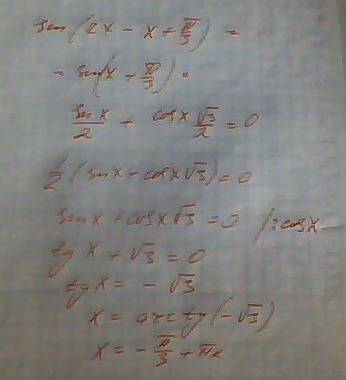 sin(2x - x + π/3) =
= sin(x + π/3) =
sin x/2 + cos x √3/2 = 0
1/2 (sin x + cos x √3) = 0
sin x + cos x √3 = 0 /: cos x
tg x + √3 = 0
tg x = - √3
x = arctg(-√3)
x = - π/3 + πk